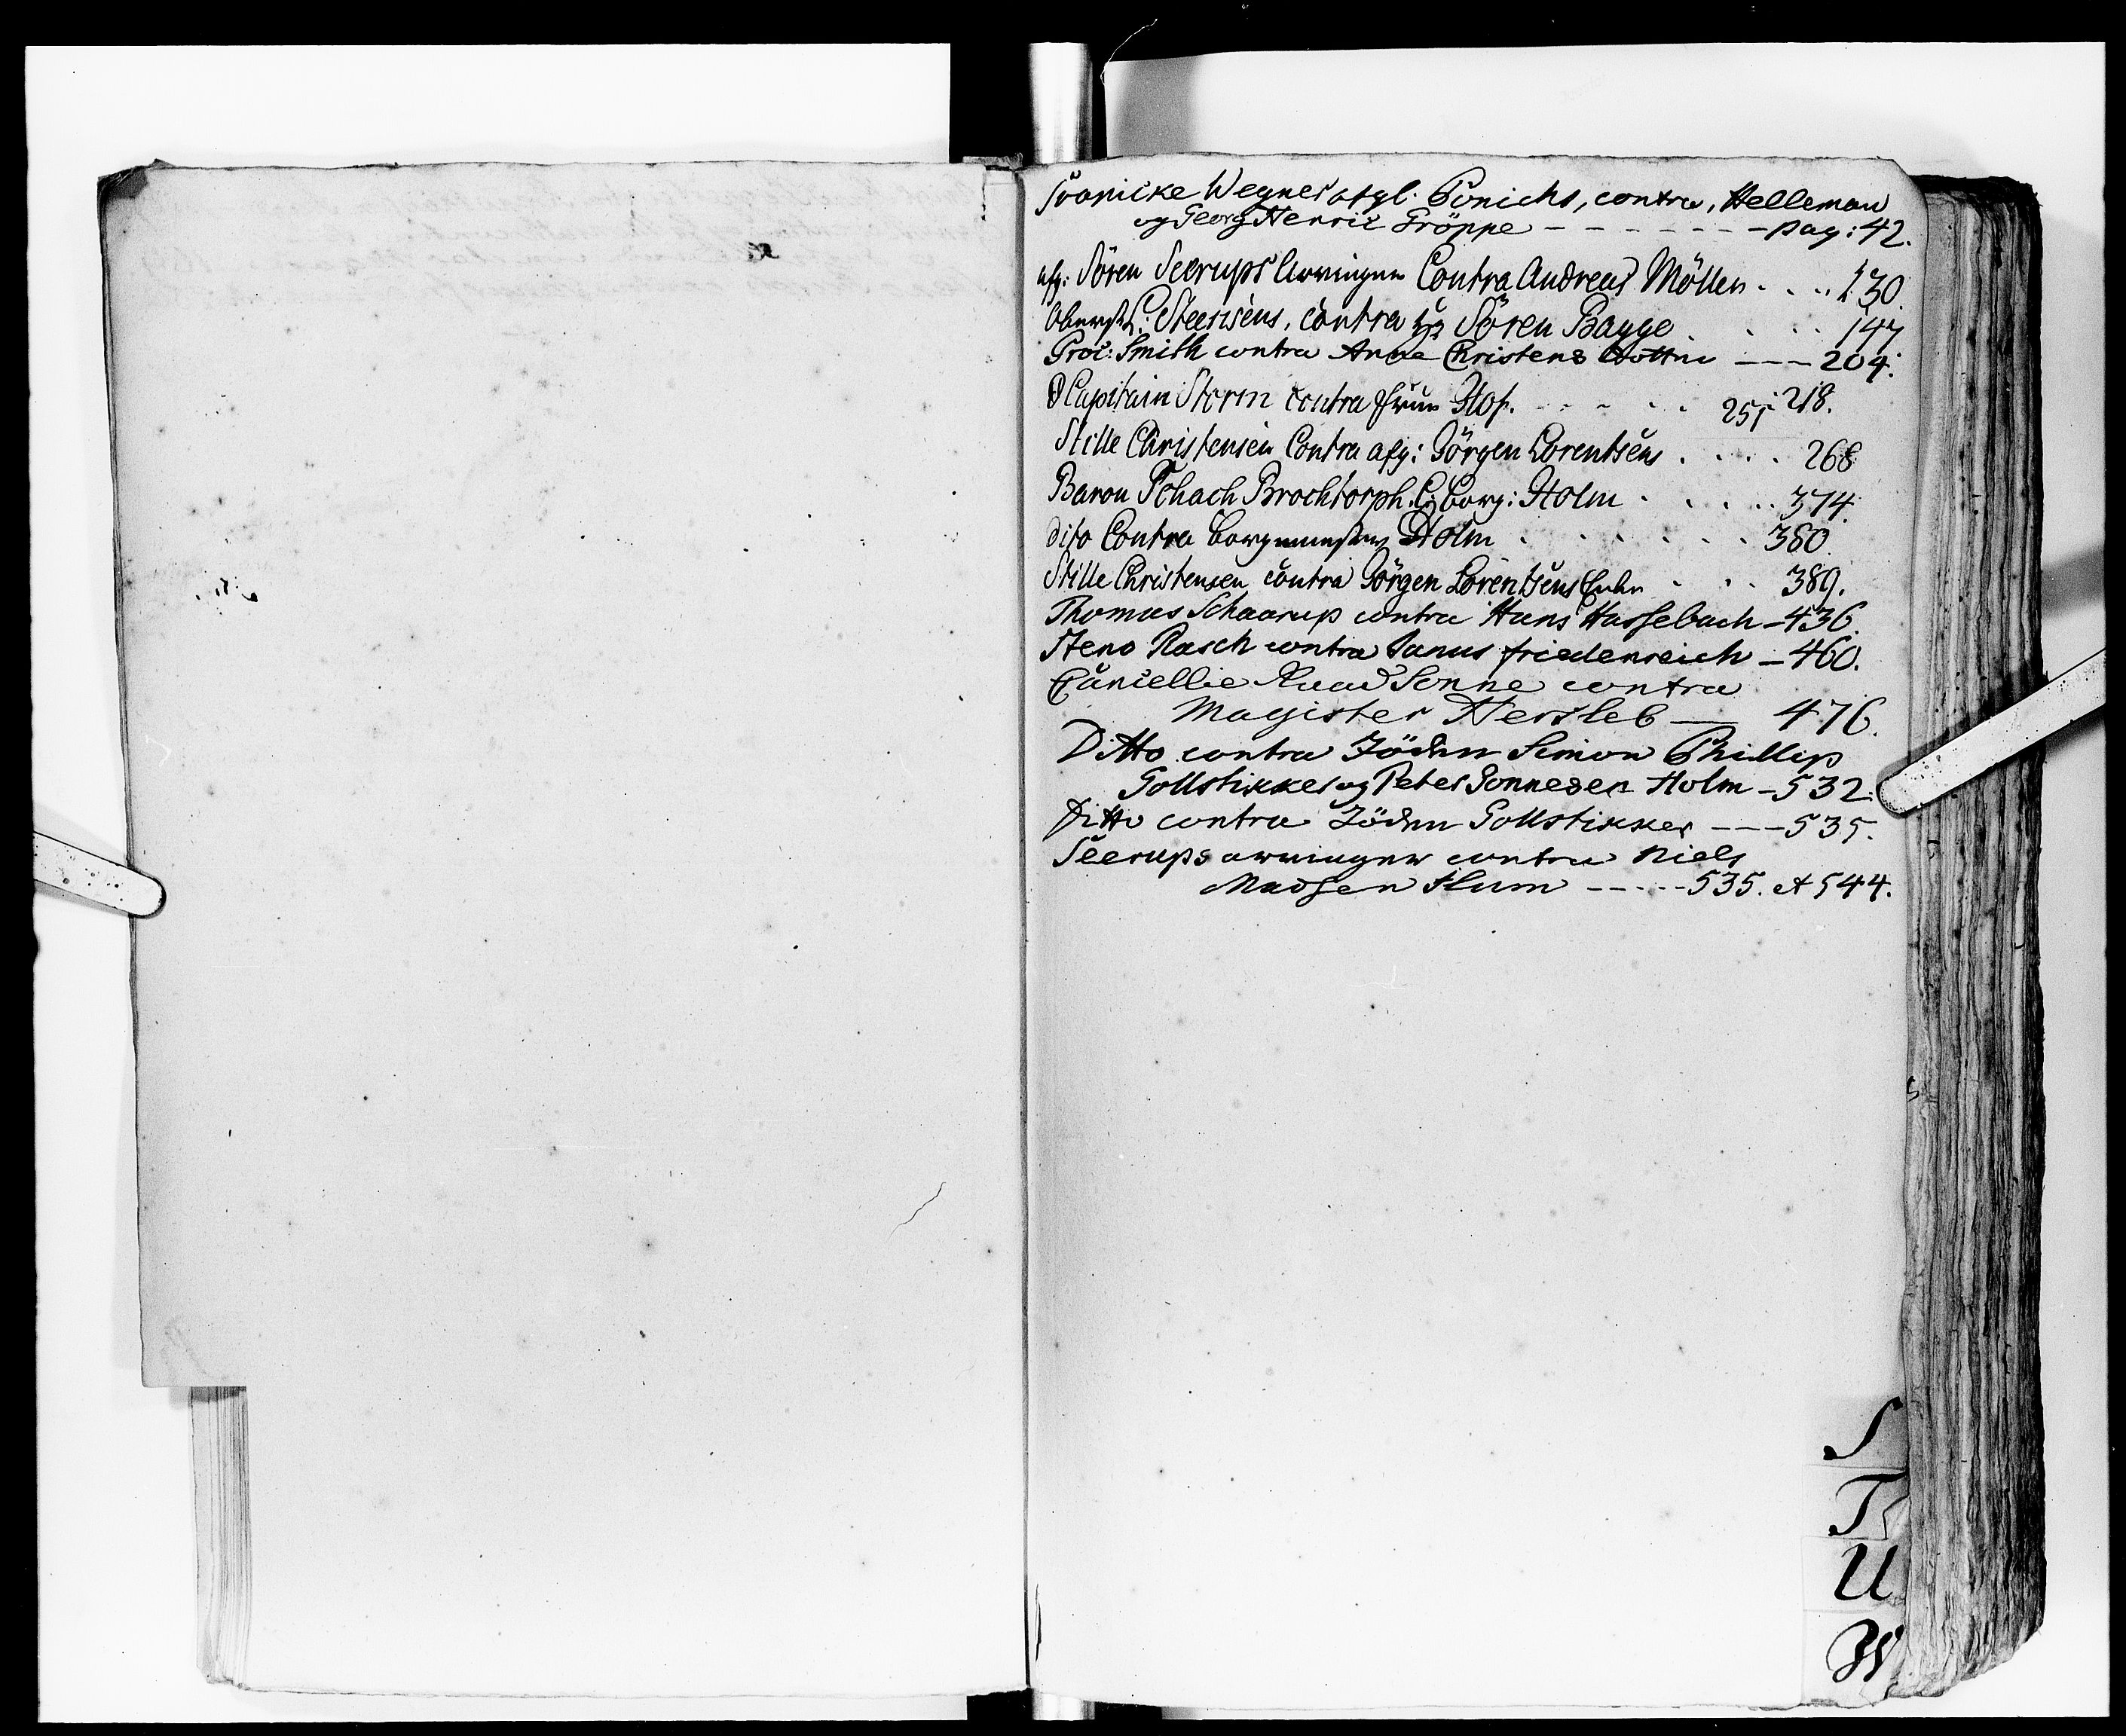 Svanicke Wegner afgl. Pönichs, contra, Helleman
og Georg Henric Gröppe - - - - - - - pag: 42.
afg: Sören Seerups Arvinger Contra Andreas Möller . . . . 130.
Oberstl: Steensens, contra Hr Sören Bagge . . . . 147
Proc: Smith contra Anne Christens Dotter --- 204.
Capitain Storm contra Frue Hof. . . . . 251 218.
Stille Christensen Contra afg: Jörgen Lorentsens . . . . 268
Baron Schach Brochtorph C: Borg: Holm . . . . 374.
dito Contra Borgemester Holm . . . . . 380.
Stille Christensen contra Jörgen Lorentsens Enke . . . 389.
Thomas Schaarup contra Hans Hassebach - 436.
Steno Rasch contra Janus friedenreich - 460.
Cancellie Raad Sonne contra
Magister Hersleb — 476.
Ditto contra Jöden Simon Phillip
Gollstikker og Peter Sonnesen Holm - 532.
Ditto contra Jöden Gollstikker --- 535.
Seerups arvinger contra Niels
Madsen Hum ----- 535. et 544.
S
T
U
W